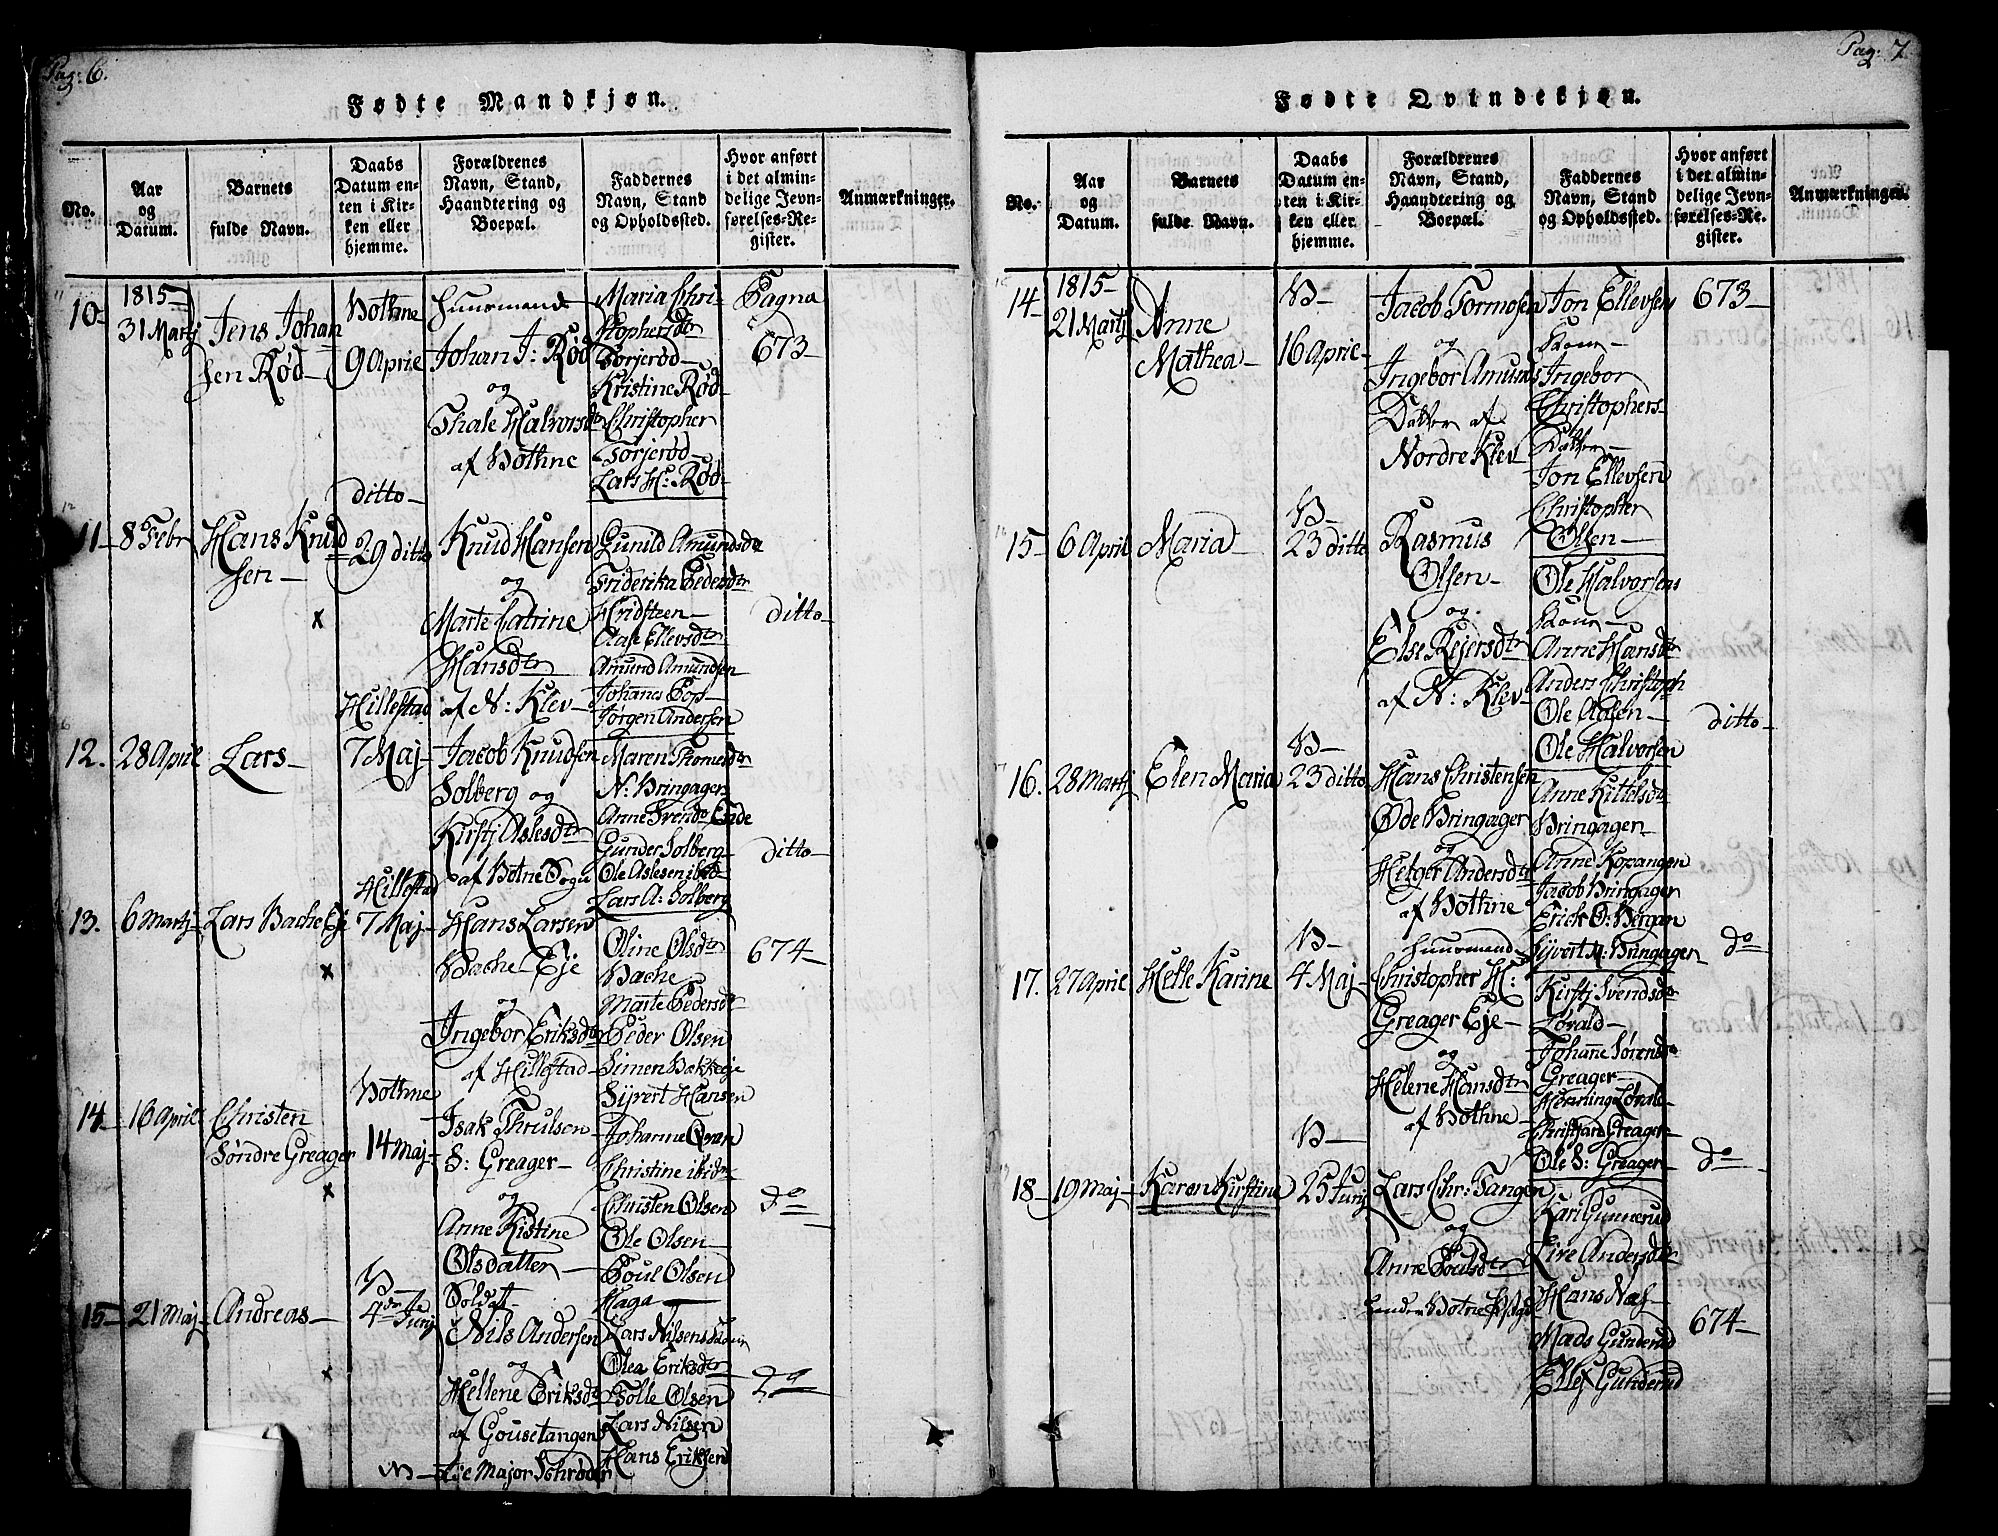 Pag: 6.
Fødte Mandkjøn.
No.
Aar
og
Datum.
Barnets
fulde Navn.
Daabs
Datum en-
ten i Kir-
ken eller
hjemme.
Forældrenes
Navn, Stand,
Haandtering og
Boepæl.
Faddernes
Navn, Stand
og Opholdssted.
Hvor anført
i det almin-
delige Jevn-
førelses-Re-
gister.
Anmærkninger.
10-
1815-
31 Martj
Jens Johan
sen Rød-
Bothne
9 April
Huusmand
Johan J: Rød
og
Thale Halvorsdtr
af Bothne
Maria Chri-
stophersdtr
Torjerød-
Kristine Rød-
Christopher
Torjerød-
Lars H: Rød-
Pagna
673-
11-
8 Febr
Hans Knud
sen-
ditto-
29 ditto
Knud Hansen
og
Marte Catrine
Hansdtr
af N: Klev-
Gunild Amundsdtr
Friderika Pedersdtr
Hridsteen-
Aase Ellevsdtr
Amund Amundsen
Johanes Pop-
Jørgen Andersen
ditto-
12.
28 April
Lars-
Hillestad
7 Maj-
Jacob Knudsen
Solberg og
Kirstj Aslesdtr
af Botne Sogn
Maren Thomesdtr
N: Bringager
Anne Svends Ende
Gunder Solberg-
Ole Aslesen ibid
Lars A: Solberg
ditto-
13.
6 Martj-
Lars Bache Eje
Hillestad
7 Maj-
Hans Larsen
Bache Eje
og
Ingebor Eriksdtr
af Hillestad-
Oline Olsdtr
Bache
Marte Pedersdtr
Peder Olsen
Simen Bakkeeje
Sijvert Hansen
674-
14-
16 April
Christen
Søndre Greager
Bothne
14 Maj-
Isak Thrulson
S: Greager-
og
Anne Kistine
Olsdatter-
Johanne Qvan
Christine ibidm
Christen Olsen
Ole Olsen-
Poul Olsen
do
15-
21 Maj-
Andreas-
B-
4de Junj
Soldatt-
Nils Andersen
og
Hellene Eriksdtr
af Gousetangen
Haga-
Lars Nilsens
Olea Eriksdtr
Tolle Olsen
Lars Nilsen
Hans Eriksen
do
Pag: 7
Fødte Qvindekjøn.
No.
Aar
og
Datum.
Barnets
fulde Navn.
Daabs
Datum en-
ten i Kir-
ken eller
hjemme.
Forældrenes
Navn, Stand,
Haandtering og
Boepæl.
Faddernes
Navn, Stand
og Opholdssted.
Hvor anført
i det almin-
delige Jevn-
førelses-Re-
gister.
Anmærkninger.
14-
1815-
21 Martj
Anne
Mathea-
B-
16 April-
Jacob Tormosen
og
Ingebor Amunds
Datter af
Nordre Klev-
Jon Ellevsen
Kone-
Ingebor
Christophers-
Datter-
Jon Ellevsen
Christopher
Olsen-
673-
15-
6 April
Maria-
B-
23 ditto
Rasmus
Olsen-
og
Else Rejersdtr
af N: Klev-
Ole Halvorsens
Kone-
Anne Hansdtr
Anders Christoph
Ole Aasen-
Ole Halvorsen
ditto-
16.
28 Martj
Elen Maria
B-
23 ditto
Hans Christensen
Øde Bringager
og
Helger Andersdtr
af Bothne
Anne Kittelsdtr
Bringager-
Anne Kopangen
Jacob Bringager
Erick O: Bergan
Sijvert A: Bringager
do
17.
27 April
Helle Karine
B-
4 Maj-
Huusmand
Christopher H:
Greager Eje-
og
Helene Hansdtr
af Bothne-
Kirstj Svendsdtr
Lørald-
Johanne Sørensdtr
Greager-
Henning Lørald-
Christjard Greager-
Ole S: Greager-
do
18-
19 Maj-
Karen Kirstine
B-
25 Junj
Lars Chr: Tangen
og
Anne Poulsdtr
Kari Gunnerud
Live Andersdtr
Hans Næs-
Mads Gunderud
Ellef Gunderud
674-